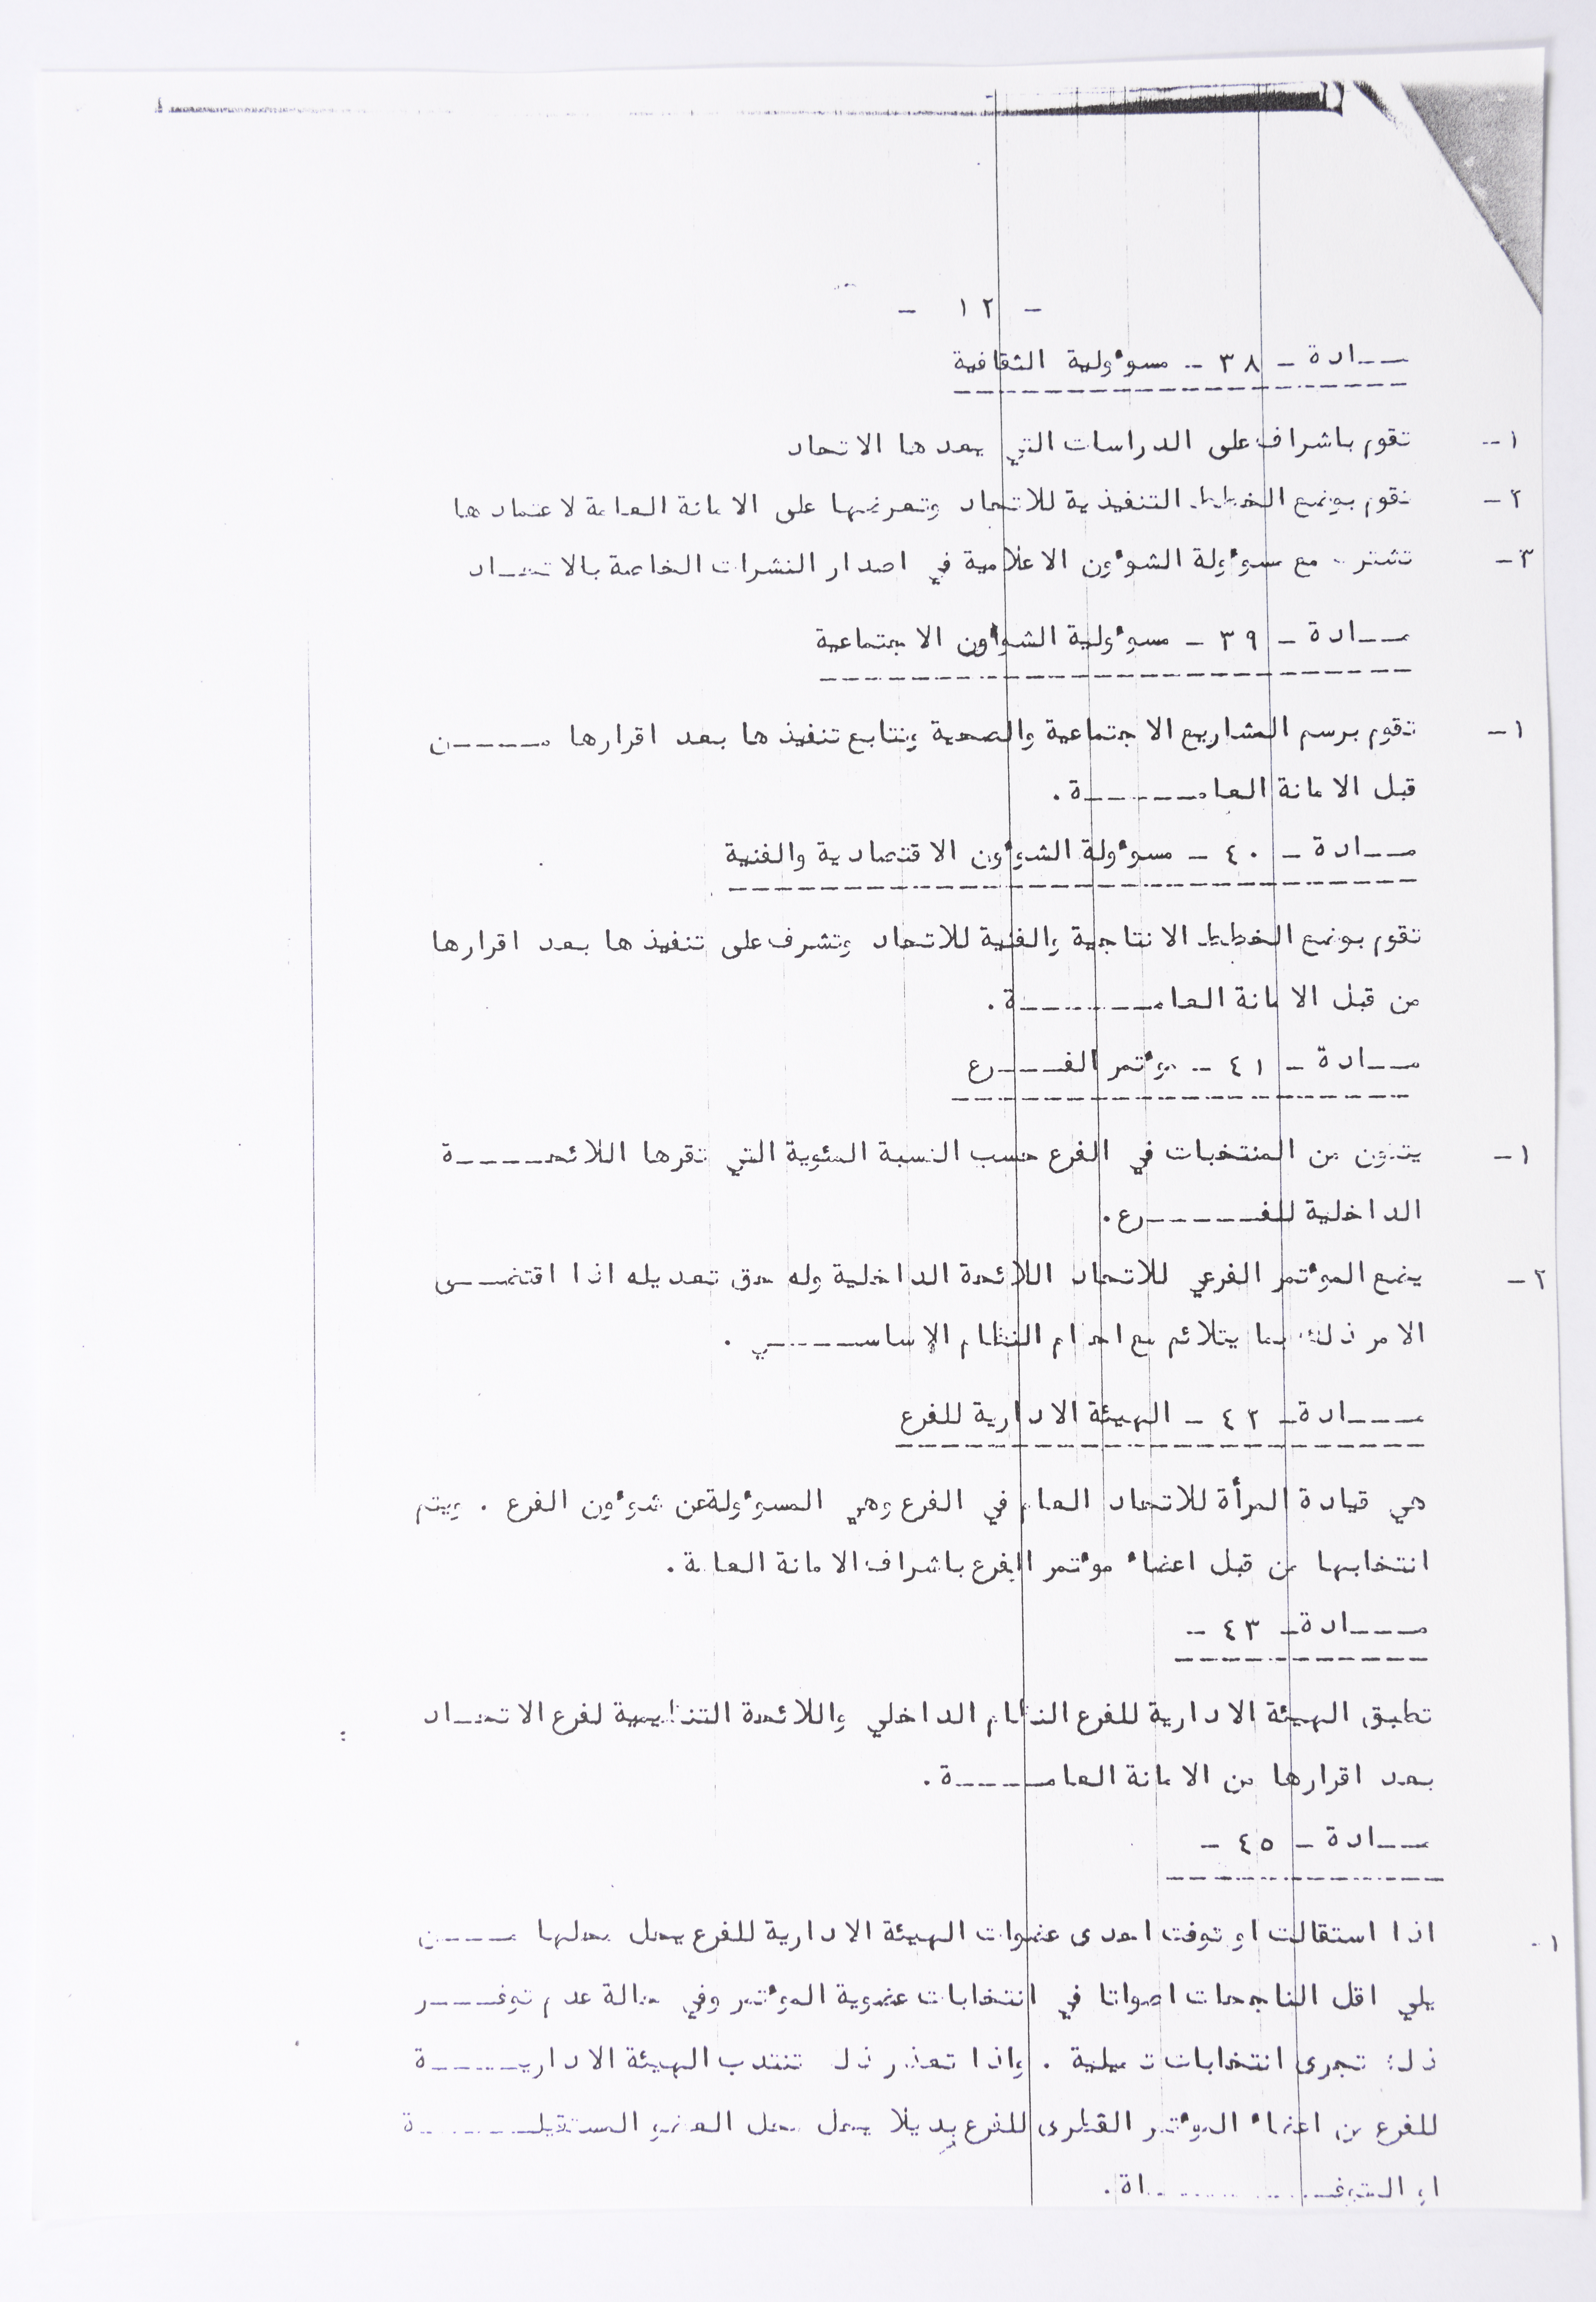 - ١٢ -
مـــادة - ٣٨ - مسوٴولية الثقافية
١- تقوم باشراف على الدراسات التي يعدها الاتحاد
٢- تقوم بوضع الخطط التنفيذية للاتحاد وتعرضها على الامانة العامة لاعتمادها
٣- تشترك مع مسوٴولة الشوٴون الاعلامية في اصدار النشرات الخاصة بالاتحـــاد
مـــادة - ٣٩ - مسوٴولية الشوٴون الاجتماعية
١- تقوم برسم المشاريع الاجتماعية والصحية وتتابع تنفيذها بعد اقرارها مـــــن
قبل الامانة العامـــــــة .
مـــادة - ٤٠ - مسوٴولة الشوٴون الاقتصادية والفنية
تقوم بوضع الخطط الانتاجية والفنية للاتحاد وتشرف على تنفيذها بعد اقرارها
من قبل الامانة العامـــــــة .
مـــادة - ٤١ - موٴتمر الفــــرع
١- يتكون من المنتخبات في الفرع حسب النسبة المئوية التي تقرها اللائحـــــة
الداخلية للفــــــرع .
٢- يضع الموٴتمر الفرعي للاتحاد اللائحة الداخلية وله حق تعديله اذا اقتضـــى
الامر ذلك بما يتلائم مع احكام النظام الاساســــــي .
مــــادة - ٤٢ - الهيئة الادارية للفرع
هي قيادة المرأة للاتحاد العام في الفرع وهي المسوٴولة عن شوٴون الفرع . ويتم
انتخابها من قبل اعضاء موٴتمر الفرع باشراف الامانة العامة .
مــــادة - ٤٣ -
تطبق الهيئة الادارية للفرع النظام الداخلي واللائحة التنظيمية لفرع الاتحـــاد
بعد اقرارها من الامانة العامـــــة .
مـــادة - ٤٥ -
١- اذا استقالت او توفت احدى عضوات الهيئة الادارية للفرع يحل محلها مــــن
يلي اقل الناجحات اصواتا في انتخابات عضوية الموٴتمر وفي حالة عدم توفــــر
ذلك تجرى انتخابات تكميلية . واذا تعذر ذلك تنتدب الهيئة الاداريـــــة
للفرع من اعضاء الموٴتمر القطرى للفرع بديلا يحل محل العضو المستقيلـــــــة
او المتوفــــــــــاة .